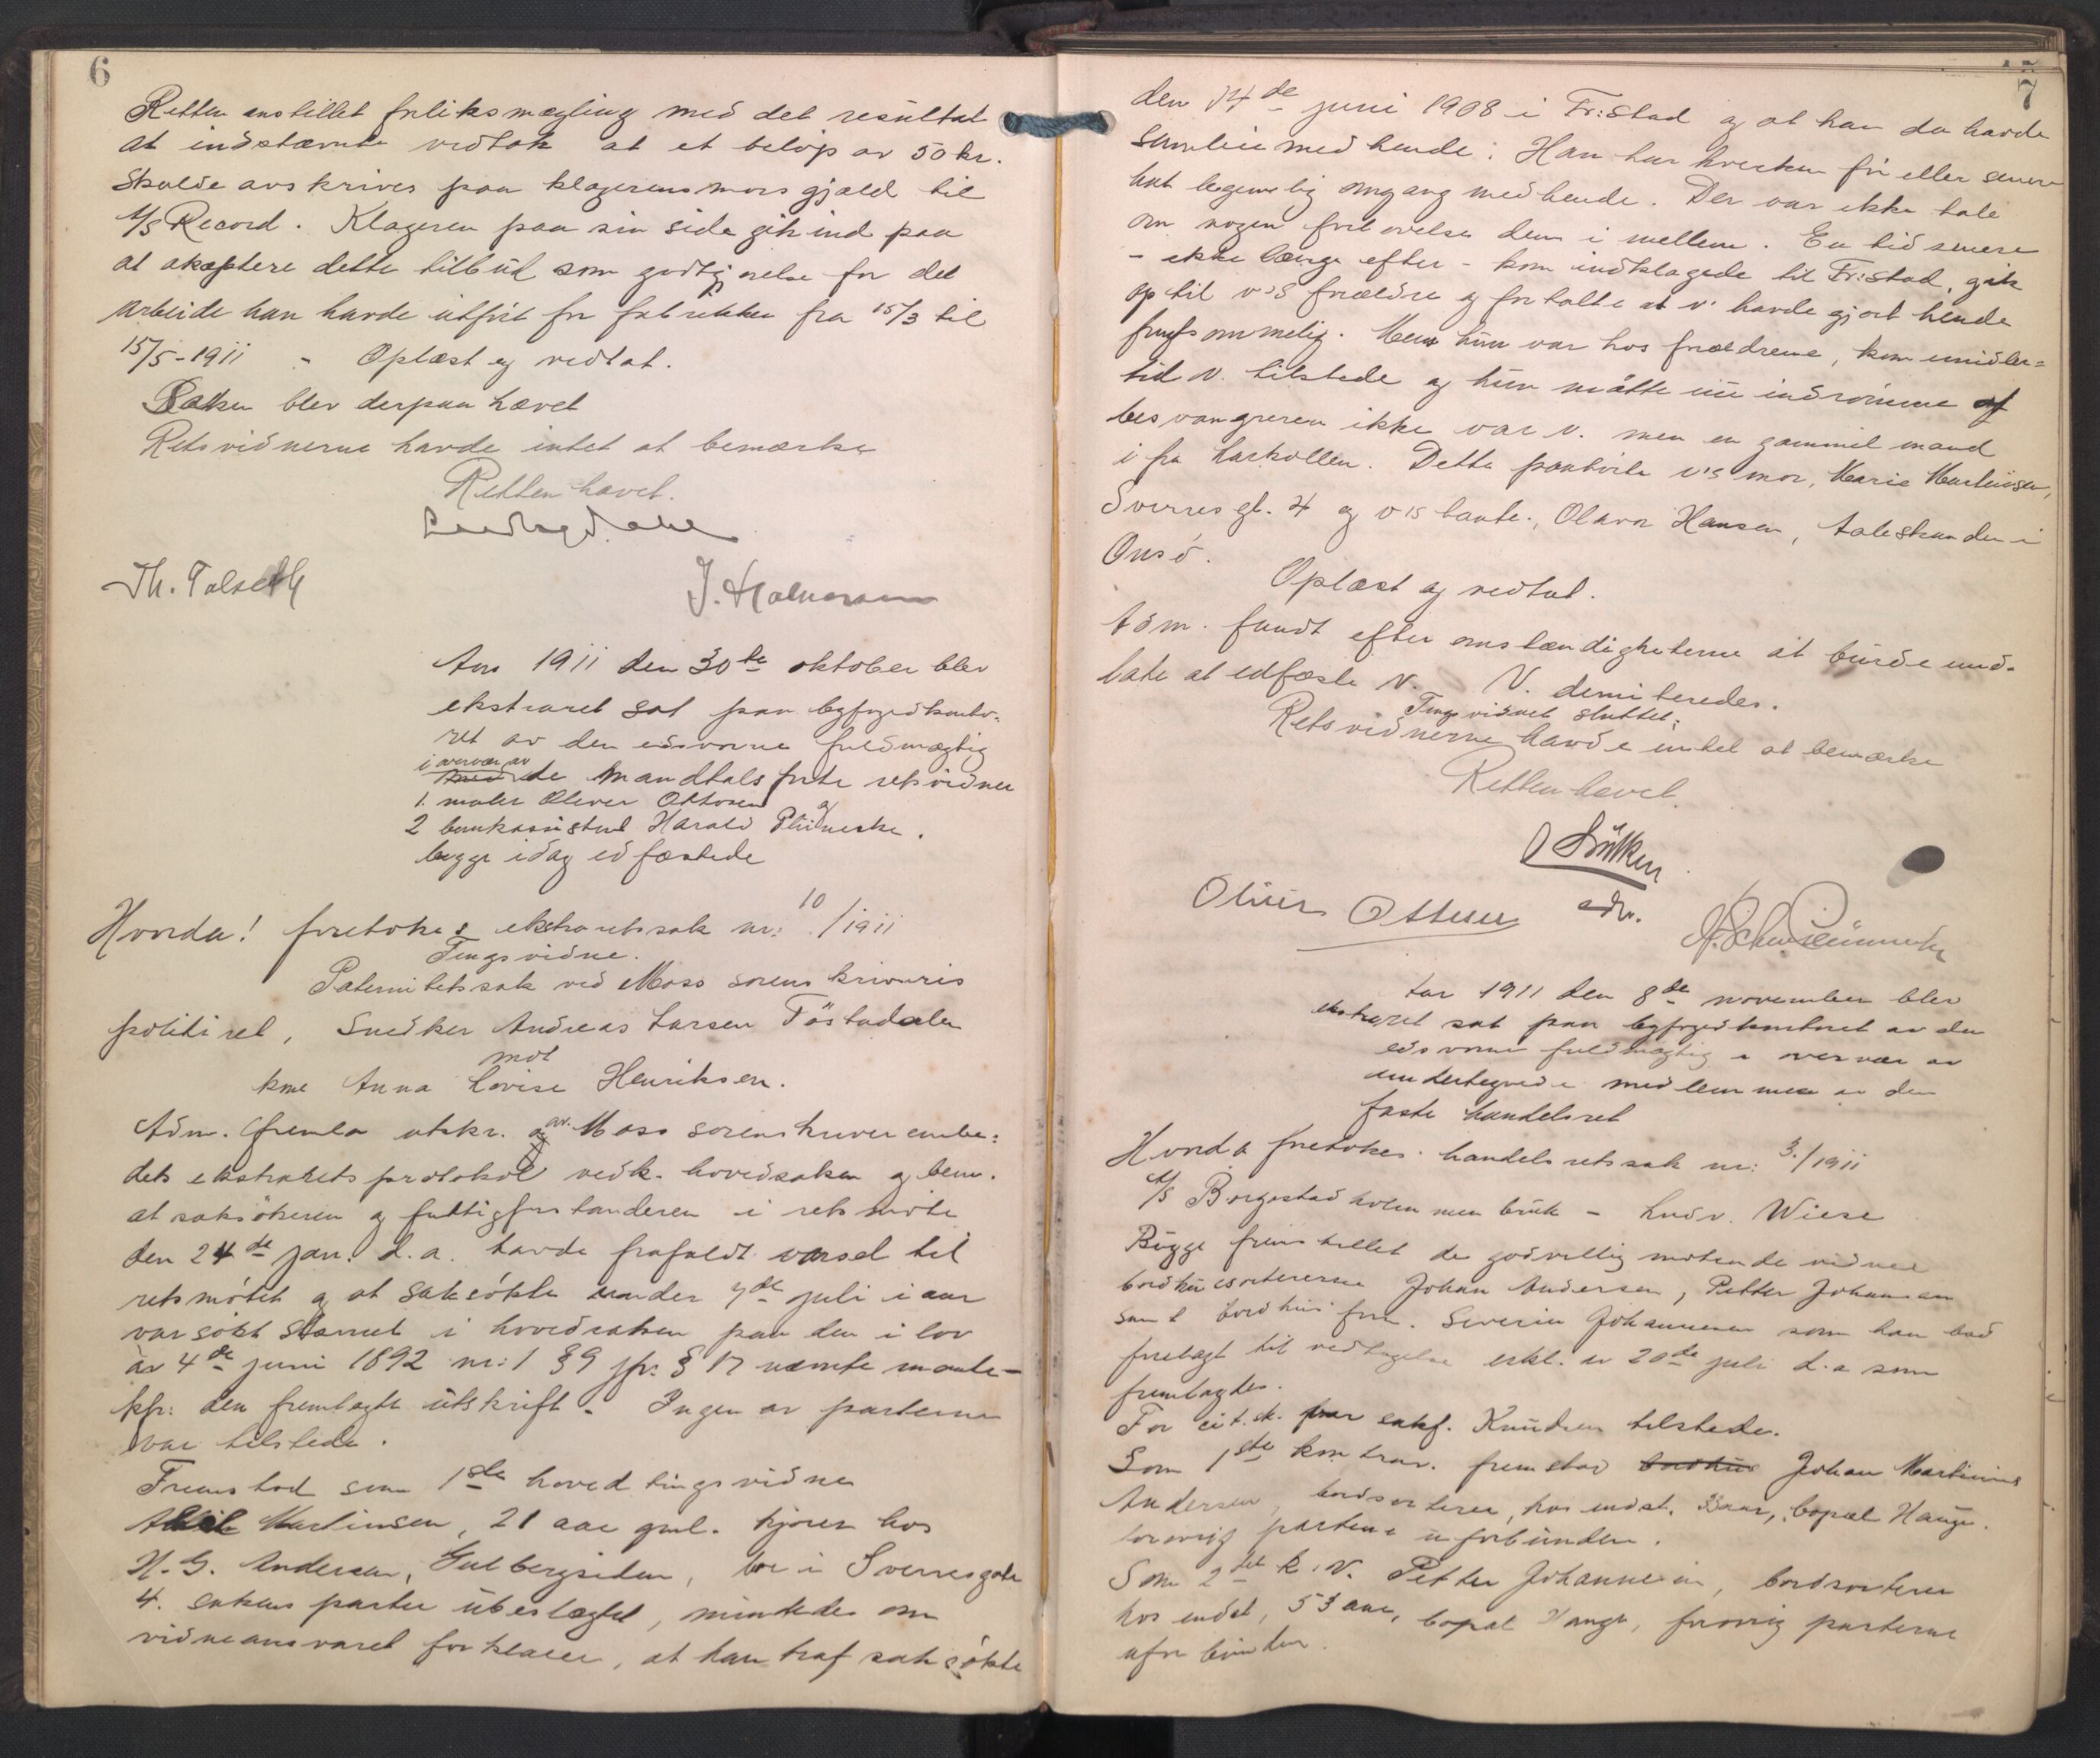 6
Retten anstillet forliksmægling med det resultat
at indstævnte vedtok at et beløp av 50 kr.
skulde avskrives paa klagerens mors gjæld til
A/S Record. Klageren paa sin side gik ind paa
at akseptere dette tilbud som godtgjørelse for det
arbeide han havde utført for fabrikken fra 15/3 til
15/5-1911 - Oplæst og vedtat.
Saken blev derpaa hævet
Retsvidnerne havde intet at bemærke
Retten hævet.
Th. Tolseth
J. Halvorsen
Aar 1911 den 30te oktober blev
ekstraret sat paa byfogedkonto-
ret av den edsvorne fuldmægtig
i overvær av
de mandtalsførte retsvidner
1. maler Oliver Ottesen og
2 bankassistent Harald
begge idag edfæstede
Hvorda! foretokes ekstraretssak nr: 10/1911
Tingsvidne.
Paternitetssak ved Moss sorenskriveris
politiret, Snedker Andreas Larsen
mot
kvne Anna Lovise Henriksen.
Adm. fremla utskr. av Moss sorenskriverembe=
dets ekstraretsprotokol vedk. hovedsaken og bem.
at saksökeren og fattigforstanderen i retsmöte
den 24de jan. d.a. havde frafaldt varsel til
retsmötet og at saksökte under 7de juli i aar
var sökt stevnet i hovedsaken paa den i lov
av 4de juni 1892 nr: 1 § 9 jfr: § 17 nævnte maate -
kfr: den fremlagte utskrift - Ingen av parterne
var tilstede.
Fremstod som 1ste hovedtingsvidne
Martinsen, 21 aar gml. kjører hos
H. G. Andersen, Gulbergsiden, bor i Sverresgate
4. sakens parter ubeslægtet, mintedes om
vidneansvaret forklarer, at han traf saksökte
7
den 14de juni 1908 i Fr:stad og at han da havde
samleie med hende. Han har hverken för eller senere
hat legemlig omgang med hende. Der var ikke tale
om nogen forlovelse dem i mellem. En tid senere
- ikke længe efter - kom indklagede til Fr:stad, gik
op til v's forældre og fortalte at v. havde gjort hende
frugtsommelig. Mens hun var hos forældrene, kom imidler=
tid v. tilstede og hun måtte nu indrömme at
besvangreren ikke var v. men en gammel mand
i fra Larkollen. Dette påhörte v's mor, Marie Martinsen,
Sverresgt. 4 og v's tante, Olava Hansen, Aaleskanden i
Onsö.
Oplæst og vedtat.
Adm. fandt efter omstændigheterne at burde und-
late at edfæste v. V. demitteredes.
Tingsvidnet sluttet.
Retsvidnerne havde intet at bemærke
Retten hævet.
Oliver Ottesen
adv.
Aar 1911 den 8de november blev
ekstraret sat paa byfogedkontoret av den
edsvorne fuldmægtig i overvær av
undertegnede medlemmer av den
faste handelsret
Hvorda foretokes handelsretssak nr: 3/1911
A/S Borgestadholmen bruk - Ludv. Wiese
Bugge fremstillet de godvillig mötende vidner
bordhussortererne Johan Andersen, Petter Johannesen
samt bordhus form. Severin Johannessen som han bad
forelagt til vedtagelse erkl. av 20de juli d.a som
fremlagdes.
For cit. sk. sakf. Knudsen tilstede.
Som 1ste kontrav. fremstod bordhus Johan Martinius
Andersen, bordsorterer, hos indst. 33 aar, bopæl Hauge.
forövrig parterne uforbunden.
Som 2det k.v. Petter Johannesen, bordsorterer
hos indst, 53 aar, bopæl Hauge, forövrig parterne
uforbunden.